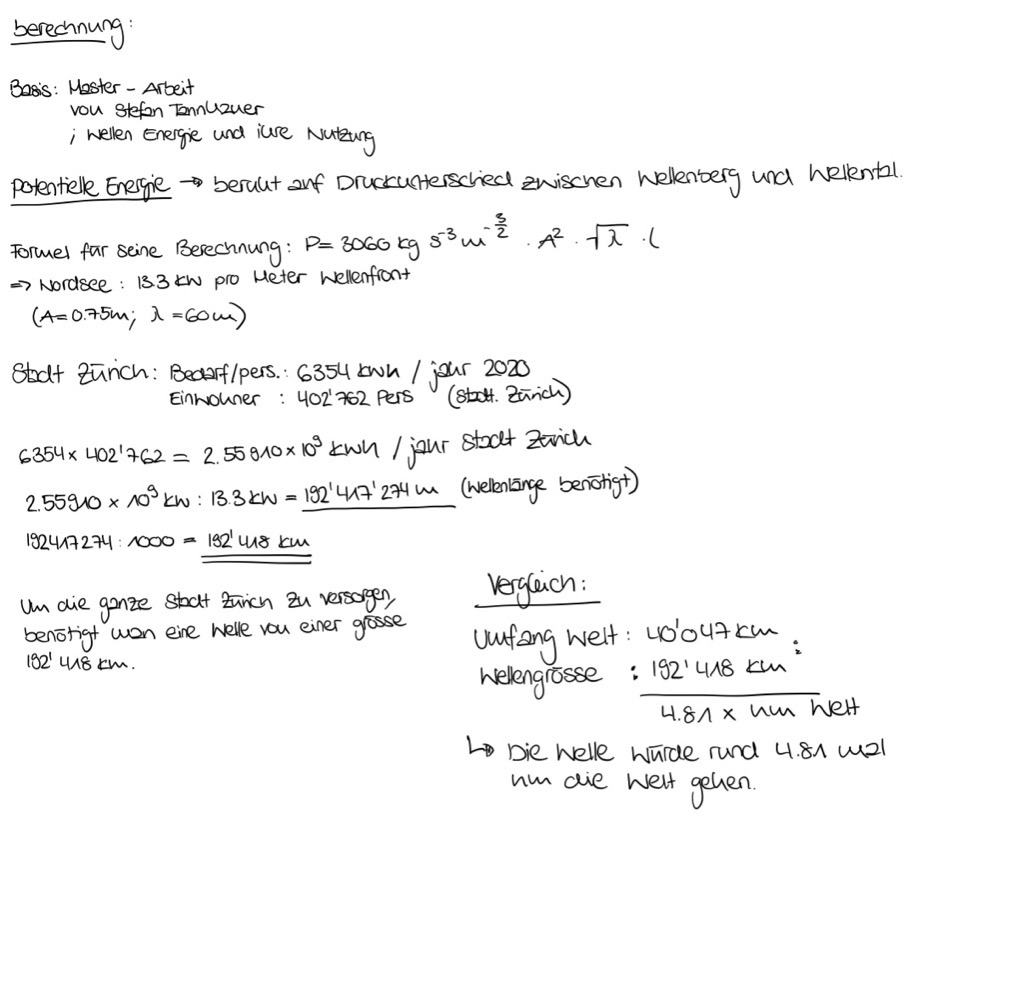 berechnung:
Basis: Master - Arbeit
von Stefan Tannhäuer
; Wellen Energie und ihre Nutzung
Potentielle Energie → beruht auf Druckunterschied zwischen Wellenberg und Wellental.
Formel für seine Berechnung: P= 3060 kg s⁻³ m^(-3/2) · A² · √λ · l
=> Nordsee : 13.3 kW pro Meter Wellenfront
(A=0.75m; λ =60m)
Stadt Zürich: Bedarf/pers.: 6354 kwh / jahr 2020
Einwohner : 402'762 Pers (Stadt. Zürich)
6354 x 402'762 = 2.55910 x 10⁹ kwh / jahr Stadt Zürich
2.55910 x 10⁹ kW : 13.3 kW = 192'417'274 m (Wellenlänge benötigt)
192417274 : 1000 = 192'418 km
Um die ganze Stadt Zürich zu versorgen,
benötigt man eine Welle von einer grösse
192'418 km.
Vergleich:
Umfang Welt : 40'047 km :
Wellengrösse : 192'418 km
4.81 x um Welt
↳ Die Welle würde rund 4.81 mal
um die Welt gehen.